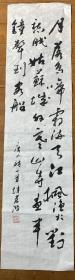 月落乌啼霜满天江枫渔火对
愁眠姑苏城外寒山寺夜半
钟声到客船